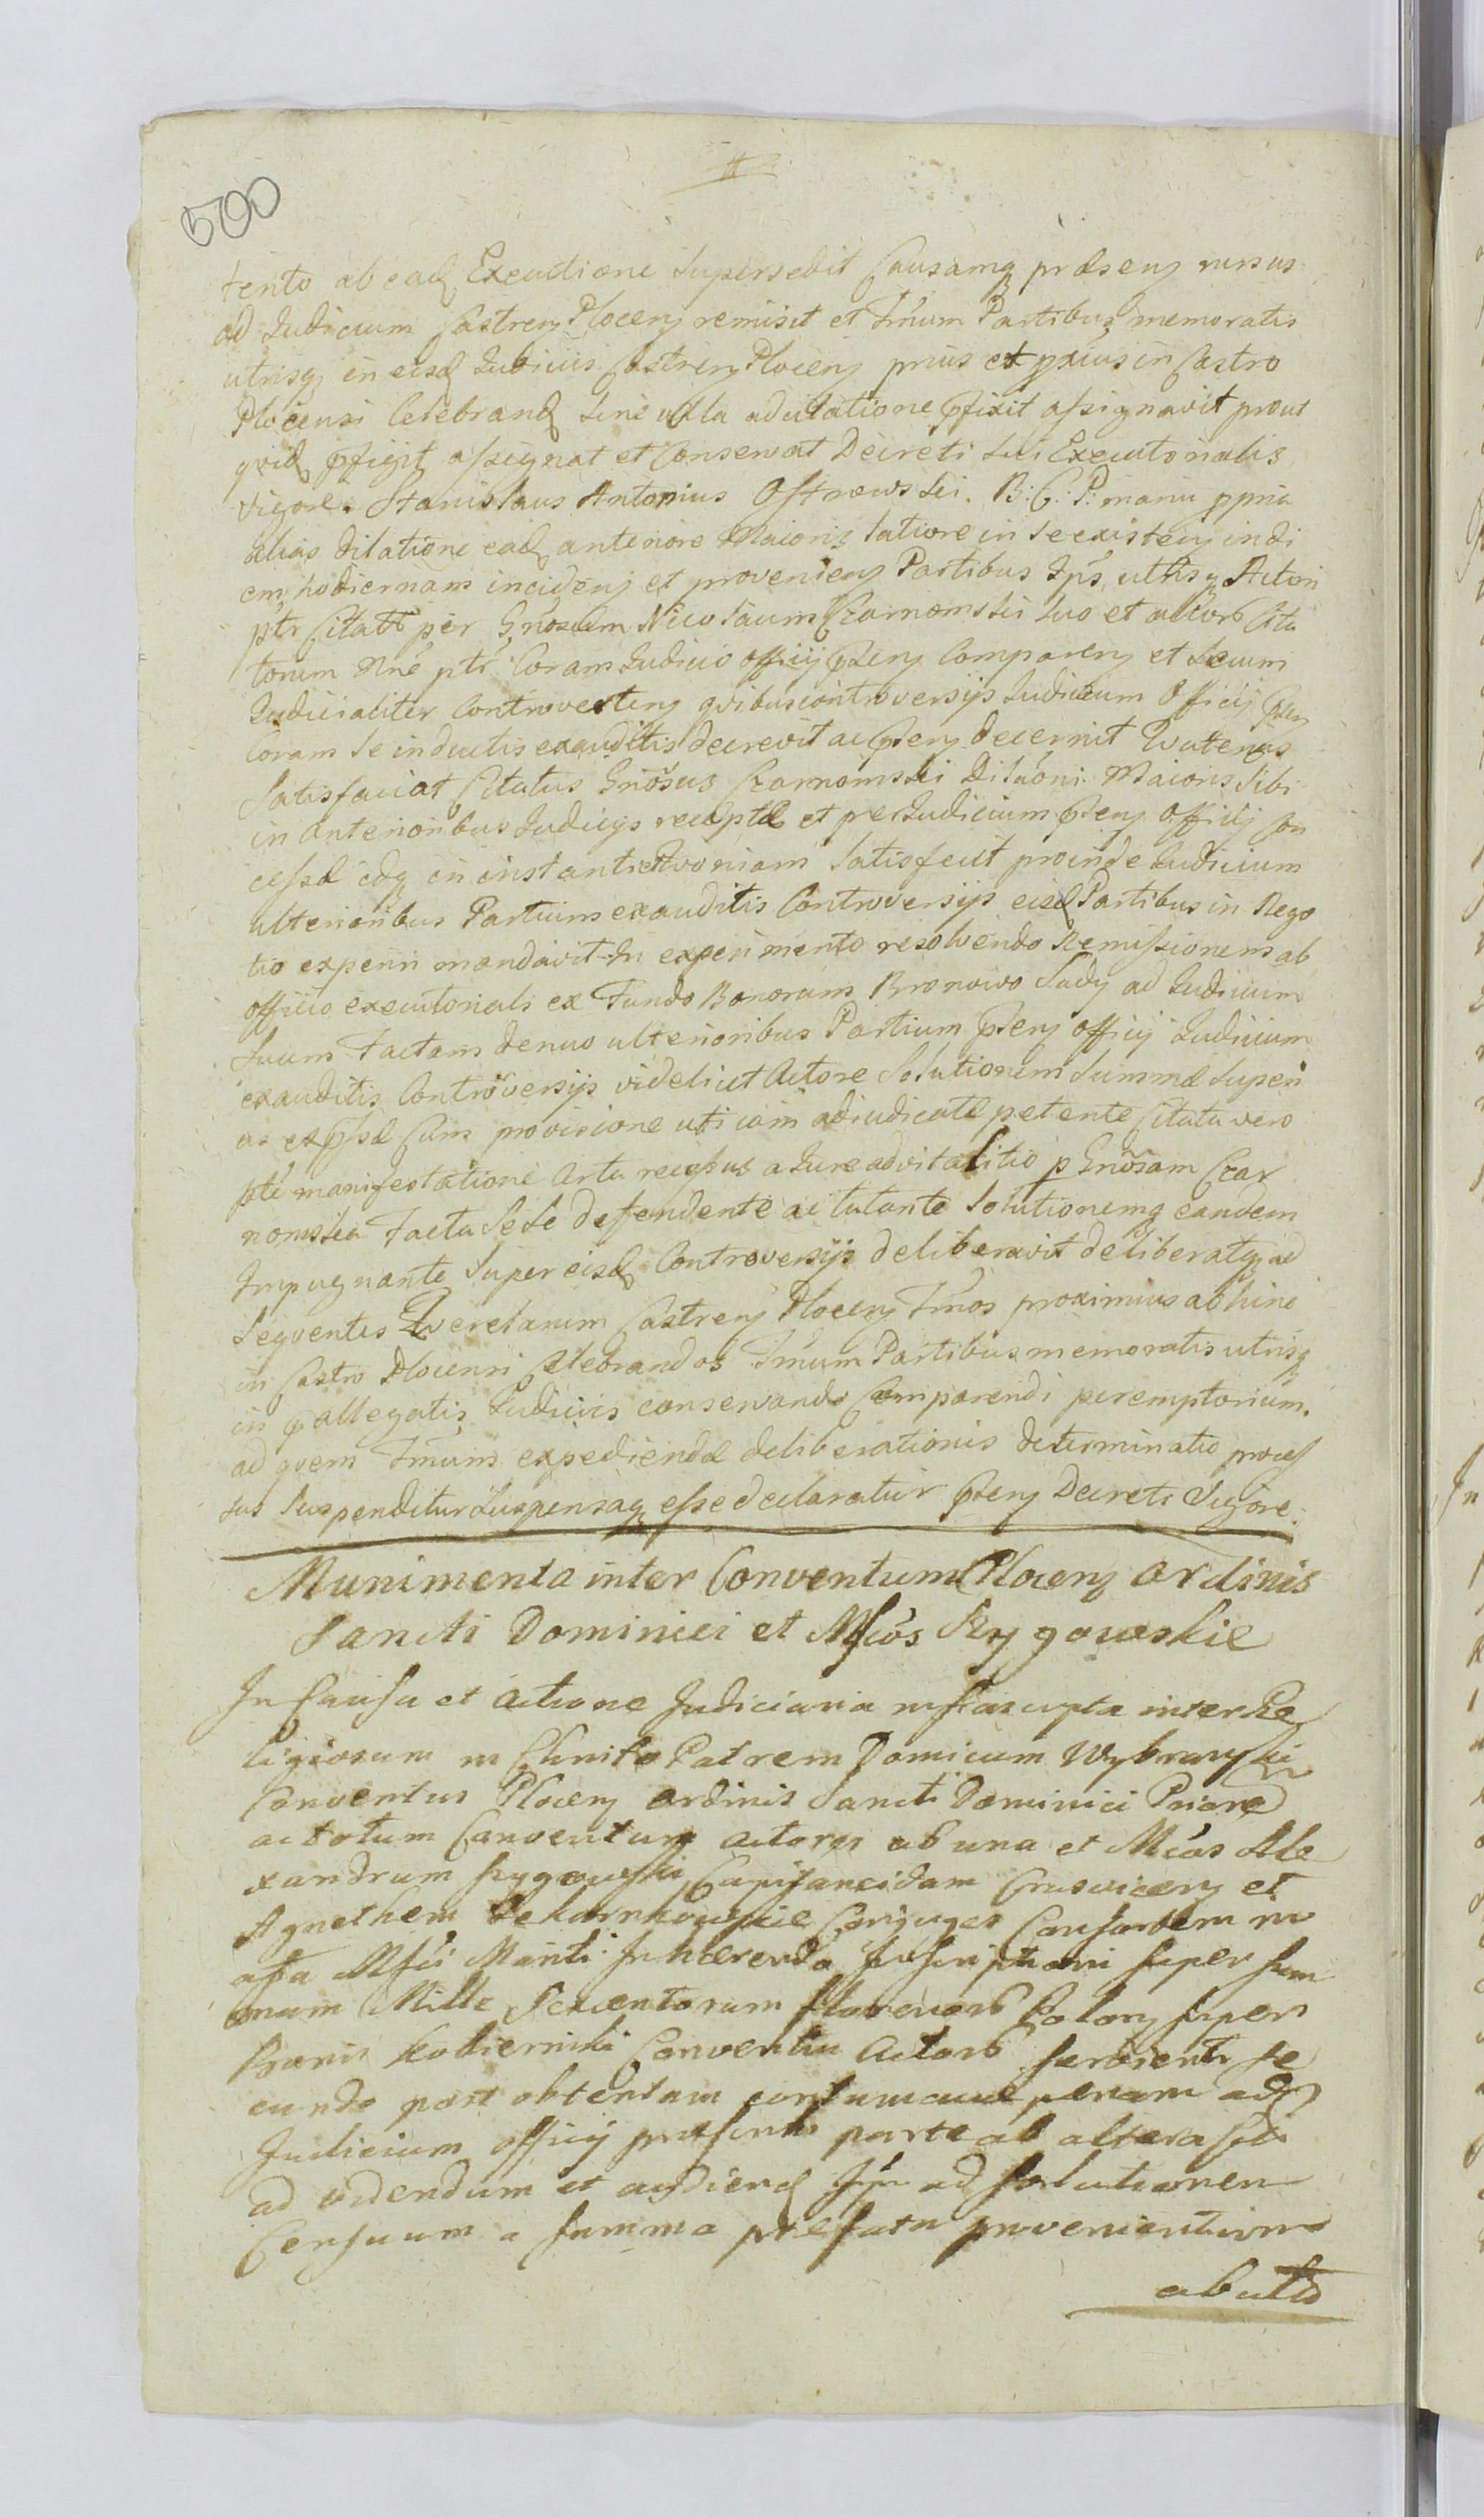 500
tento ab ead Executione supersedit Causamq praeseny rursus
ad Iudicium Castreny Ploceny remisit et Tmum Partibus memoratis
utrisq in eisd Iudiciis Castreny Ploceny prius et pxius in Castro
Plocensi Celebrand sine ulla adcitatione pfixit assignavit prout
qvid pfigit assignat et Conservat Decreti sui Executorialis
vigore. Stanislaus Antonius Ostrowski. B: C: P: manu ppria
alias dilatione ead anteriore Maioris latiore in se existeny in di
em hodiernam incideny et provenieny Partibus Ips utrisq Actori
ptr Citato per Gnosum Nicolaum Czarnomski suo et alioro Cita
torum Nne ptr Coram Iudicio officij pseny Compareny et secum
Iudicialiter Controverteny qvibus controversijs Iudicium Officij pseny
Coram se inductis exauditis decrevit ac pseny decernit Qvatenus
Satisfaciat Citatus Gnosus Czarnomski Dilaoni Maioris sibi
in anterioribus Iudicijs receptae et per Iudicium pseny Officij Con
cessae idq in instanti Qvoniam satisfecit proinde Iudicium
ulterioribus Partium exauditis Controversijs eisd Partibus in Nego
tio experiri mandavit In experimento resolvendo Remissionem ab
officio executoriali ex Fundo Bonorum Bronowo Sady ad Iudicium
suum Factam denuo ulterioribus Partium pseny officij Iudicium
exauditis Controversijs videlicet Actore Solutionem Summae superi
us expssae Cum provisione uti iam adiudicatae petente Citatu vero
pte manifestatione Actu recessus a Iure advitalitio p Gnosam Czar
nomska Facta sese defendente ac tutante Solutionemq eandem
Impugnante super eisd Controversijs deliberavit deliberatq ad
seqventes Qverelarum Castreny Ploceny Tmos proximius ab hinc
in Castro Plocensi Celebrandos Tmum Partibus memoratis utrisq
in pallegatis Iudiciis conservando Comparendi peremptorium.
ad qvem Tmum expediendae deliberationis determinatio proces
sus suspenditur suspensaq esse declaratur pseny Decreti Vigore.
Munimenta inter Conventum Ploceny Ordinis
Sancti Dominici et Mfcos Rygowskie
In Causa et Actione Judiciaria infrascripta inter Re
ligiosum in Christo Patrem Domicum Wybrans
Conventus Ploceny ordinis Sancti Dominici Priore
ac totum Conventum actores ab una et Mcos Ale
xandrum Capitaneidam Crusviceny et
Agnethem Coniuges Consortem in
assa Mfci Mariti Inhaerendo Inscriptioni super sum
mam Mille Sexcentorum floreno Polony super
Bonis Kobierniki Conventui Actoro servienti se
cundo post obtentam contumaciae penam ad
Judicium officij praesentis parte ab altera
ad videndum et audiend Ips ad solutionem
Censuum a summa praefata provenientium
ab